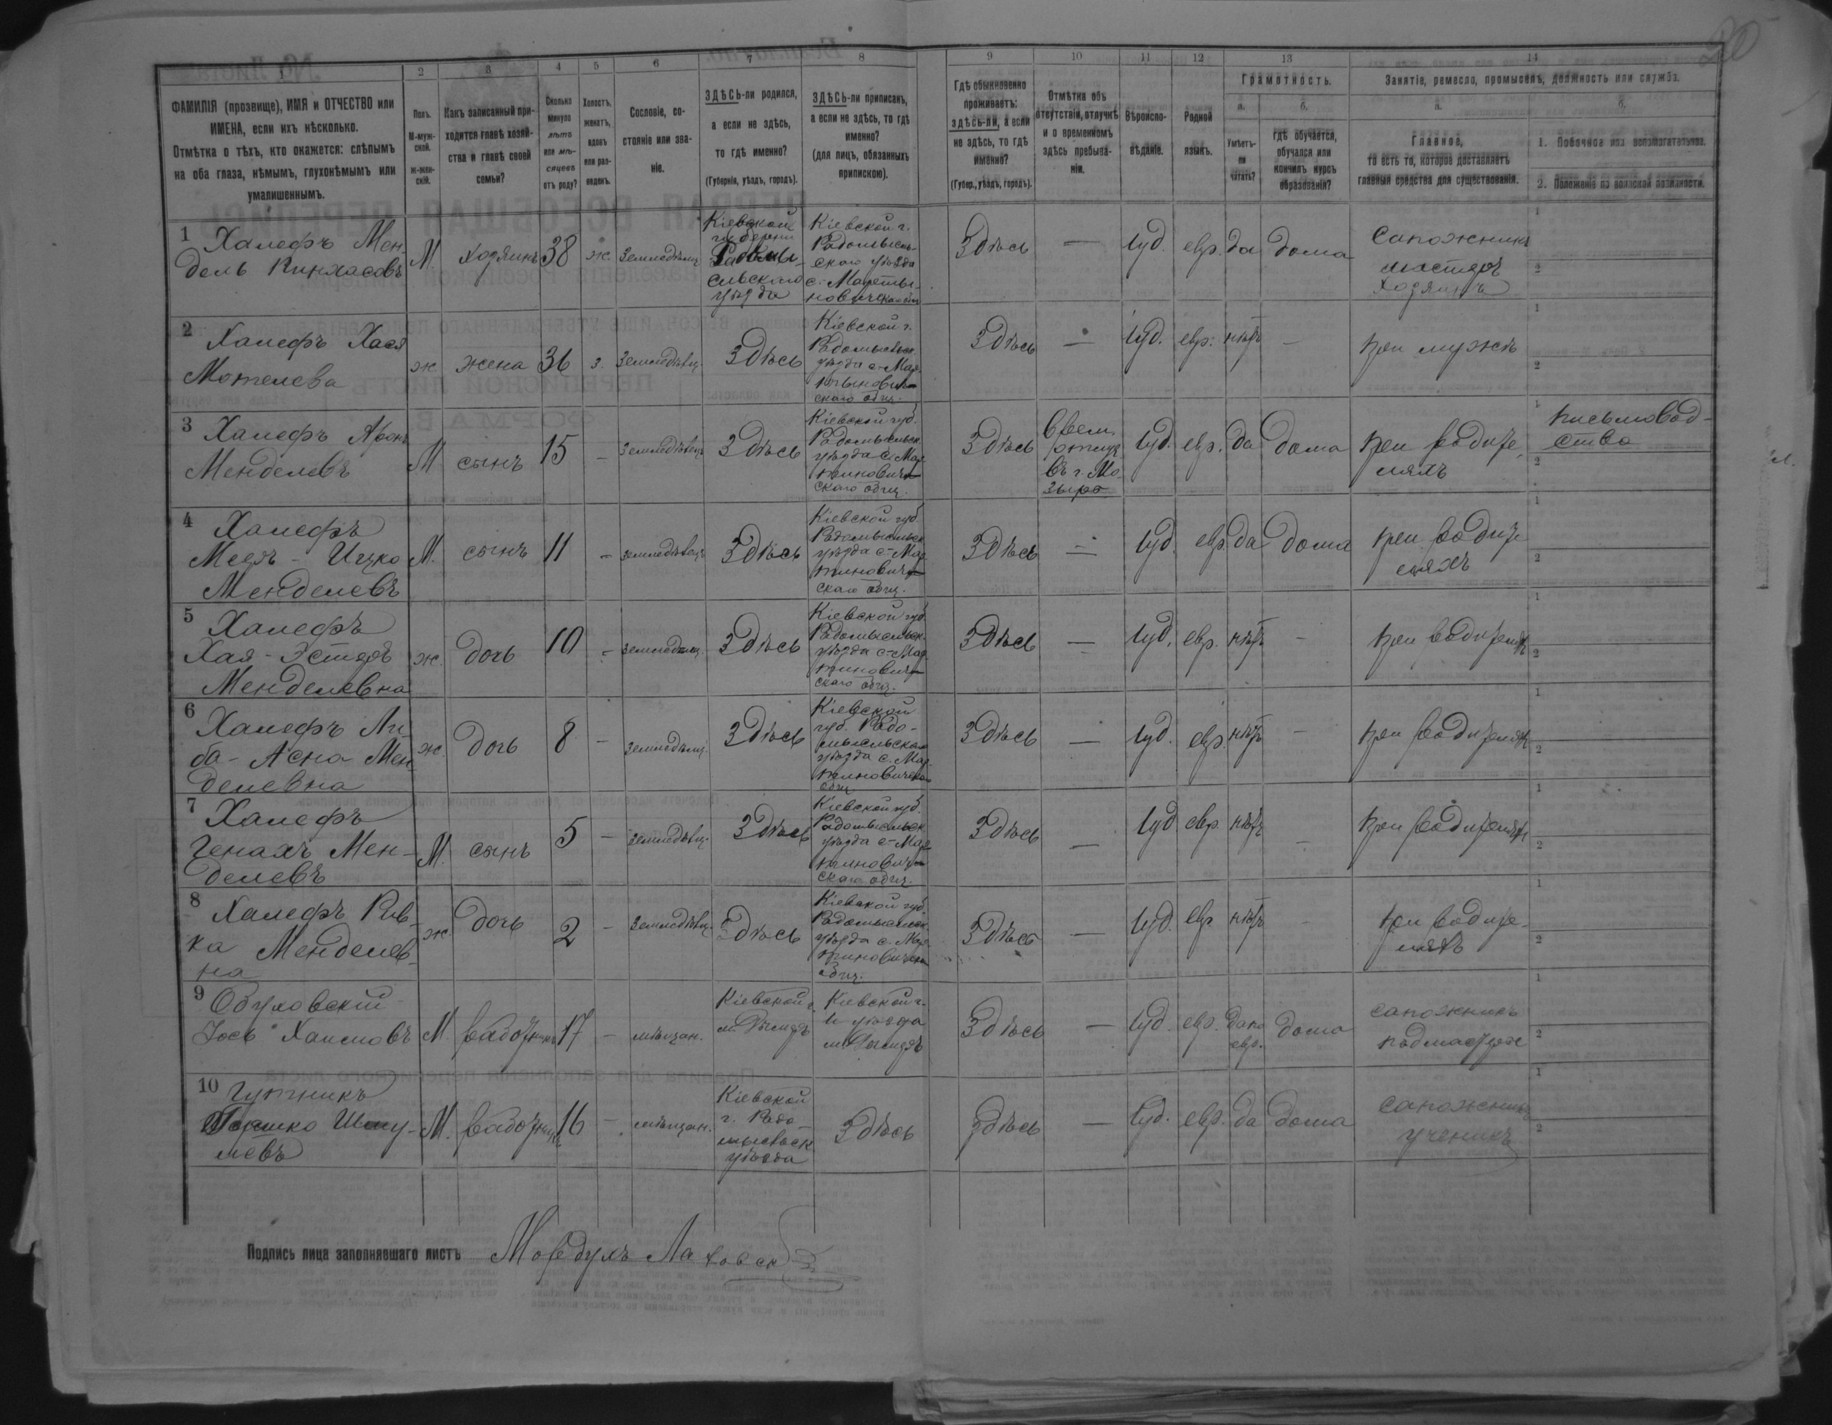 20
1 2 3 4 5 6 7 8 9 10 11 12 13 14
ФАМИЛІЯ (прозвище), ИМЯ и ОТЧЕСТВО или ИМЕНА, если ихъ нѣсколько.
Отмѣтка о тѣхъ, кто окажется: слѣпымъ на оба глаза, нѣмымъ, глухонѣмымъ или умалишеннымъ.
Полъ.
М-мужской.
Ж-женскій.
Какъ записанный приходится главѣ хозяйства и главѣ своей семьи?
Сколько минуло лѣтъ или мѣсяцевъ отъ роду?
Холостъ, женатъ, вдовъ или разведенъ.
Сословіе, состояніе или званіе.
ЗДѢСЬ-ли родился, а если не здѣсь, то гдѣ именно?
(Губернія, уѣздъ, городъ).
ЗДѢСЬ-ли приписанъ, а если не здѣсь, то гдѣ именно?
(для лицъ, обязанныхъ припискою).
Гдѣ обыкновенно проживаетъ: здѣсь-ли, а если не здѣсь, то гдѣ именно?
(Губер., уѣздъ, городъ).
Отмѣтка объ отсутствіи, отлучкѣ и о временномъ здѣсь пребываніи.
Вѣроисповѣданіе.
Родной языкъ.
Грамотность.
а.
Умѣетъ-ли читать?
б.
гдѣ обучается, обучался или кончилъ курсъ образованія?
Занятія, ремесло, промыселъ, должность или служба.
а.
Главное,
то есть то, которое доставляетъ главныя средства для существованія.
б.
1. Побочное или вспомогательное.
2. Положеніе по воинской повинности.
1 Халефъ Мен-
дель Пинхасовъ
М. хозяинъ 38 ж. земледѣлец
Кіевской
губерніи
Радомы-
сльскаго
уѣзда
Кіевской г.
Радомысль-
скаго уѣзда
с. Марты-
новичск. общ
Здѣсь — іуд. евр. да дома
сапожникъ
мастеръ
хозяинъ
2 Халефъ Хася
Мотелева
ж. жена 36 з. земледѣлец Здѣсь
Кіевской г.
Радомысльск
уѣзда с. Мар-
тынович
скаго общ.
Здѣсь — іуд. евр. нѣтъ —
при мужѣ
3 Халефъ Аронъ
Менделевъ
М сынъ 15 — земледѣлец Здѣсь
Кіевской губ.
Радомысльск
уѣзда с. Мар-
тынович
скаго общ.
Здѣсь
въ г. Мо-
зырѣ
іуд. евр. да дома
при родите-
ляхъ
письмовод-
ство
4 Халефъ
Мееръ - Ицко
Менделевъ
М. сынъ 11 — земледѣлец Здѣсь
Кіевской губ.
Радомысльск
уѣзда с. Мар-
тынович
скаго общ.
Здѣсь — іуд. евр. да дома
при родите
ляхъ
5 Халефъ
Хая - Эстеръ
Менделевна
ж. дочь 10 — земледѣлец. Здѣсь
Кіевской губ.
Радомысльск.
уѣзда с. Мар-
тынович
скаго общ.
Здѣсь — іуд. евр. нѣтъ —
при родителях
6 Халефъ Ли-
ба - Асна Мен-
делевна
ж. дочь 8 — земледѣлец. Здѣсь
Кіевской
губ. Радо-
мысльскаго
уѣзда с. Мар-
тыновичск
общ
Здѣсь — іуд. евр. нѣтъ —
при родителях
7 Халефъ
Генахъ Мен-
делевъ
М. сынъ 5 — земледѣлец. Здѣсь
Кіевской губ.
Радомысльск
уѣзда с. Мар-
тынович
скаго общ.
Здѣсь — іуд евр нѣтъ —
при родителях
8 Халефъ Рив-
ка Менделев-
на
ж дочь 2 — земледѣлец. Здѣсь
Кіевской губ.
Радомысльск
уѣзда с. Мар-
тыновичск
общ.
Здѣсь — іуд. евр нѣтъ —
при родите-
ляхъ
9 Обуховскій
Іось Хаимовъ
М. работникъ 17 — мѣщан.
Кіевской г.
Кіевской г.
и уѣзда
Здѣсь — іуд. евр.
да по
евр.
дома
сапожникъ
подмастерье
10 Гутникъ
Шму-
левъ
М. работник 16 — мѣщан.
Кіевской
г. Радо-
мысльск
уѣзда
Здѣсь Здѣсь — іуд. евр. да дома
сапожникъ
ученикъ
Подпись лица заполнявшаго листъ Мордухъ Лаховскій